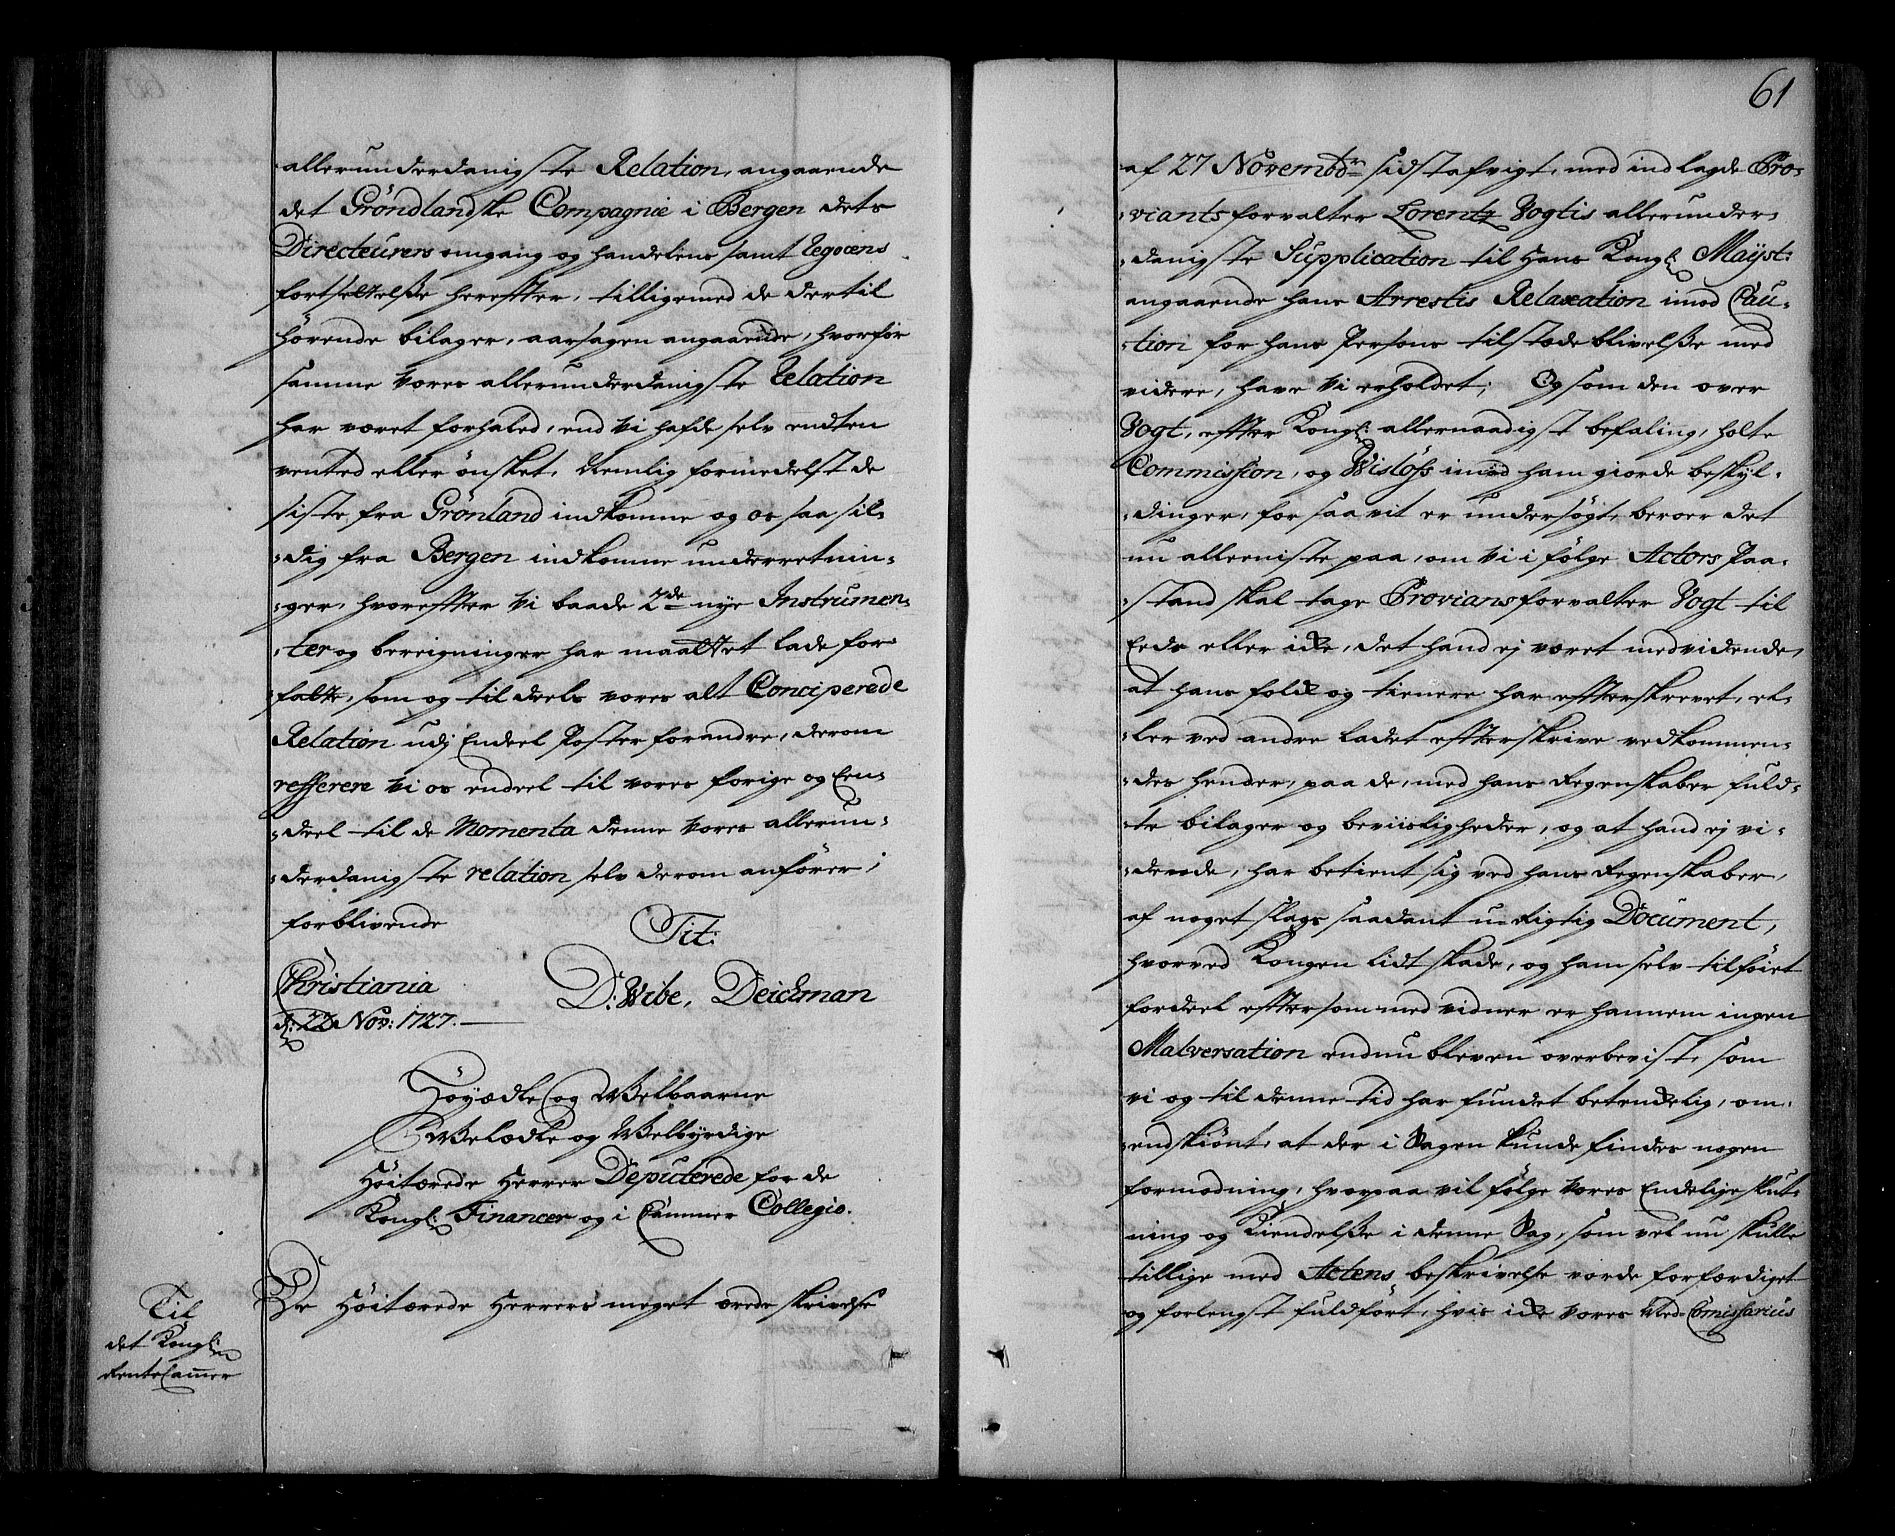 allerunderdanigste Relation, angaaende
det Gröndlandske Compagnie i Bergen dets
Directeurers omgang og handelens samt Negocens
fortsettelsse herefter, tilligemed de dertil
hörende bilager, aarsagen angaaende, hvorfor
samme Vores allerunderdanigste Relation
har været forhaled, end Vi hafde selv endten
vented eller önsket, Nemlig formedelst de
siste fra Grönland indkomne og os saa sil-
-dig fra Bergen indkomne underretnin-
-ger, hvorefter Vi baade 2de nye Instrumen-
-ter og bereigninger har maattet lade for-
fatte, som og til deels vores alt Conciperede
Relation udj Endeel Poster forandre, derom
refferere Vi os endeel til vores forige og Een-
-deel til de Momenta denne Vores allerun-
-derdanigste relation selv derom anförer;
forblivende
Tit:
Christiania
d: 22 Nov: 1727.
D: Wibe, Deichman
Höyædle og Welbaarne
Welædle og Welbyrdige
Höitærede Herrer Deputerede for de
Kongl: Financer og i Cammer Collegio.
Til
det Kongl:
RenteCammer
De Höitærede Herrers meget ærede skrivelse
61
af 27 Novembr sidstafvigt, med indlagde Pro-
-viantsforvalter Lorentz Vogtis allerunder-
-danigste Supplication til Hans Kongl: Mayst:
angaaende hans Arrestis Relaxation imod Cau-
-tion for hans Persons tilstædeblivelsse med
videre, have Vi erholdet; Og som den over
Vogt, efter Kongl: allernaadigst befaling, holte
Commission, og Wislöfs imod ham giorde beskyl-
-dinger, for saa vit er undersögt, beroer det
nu alleeniste paa, om Vi i fölge Actors Paa-
-stand skal tage Proviansforvalter Vogt til
Eeds eller icke, det hand ej været medvidende,
at hans folck og tienere har efterskrevet, el-
-ler ved andre ladet efterskrive vedkommen-
-des hender, paa de, med hans Regenskaber fuld-
-te bilager og beviisligheder, og at hand ej vi-
-derede, har betient sig ved hans Regenskaber,
af noget slags saadant u-Rigtig Document,
hvorved Kongen lidt skade, og ham selv tilföiet
fordeel eftersom med vidner er hannem ingen
Malversation endnu bleven overbevist, som
vi og til denne tid har fundet betenckelig, om-
-endskiönt, at der i Sagen kunde findes nogen
formodning, hvorpaa vil fölge Vores Endelige slut-
ning og Kiendelsse i denne Sag, som vel nu skulle
tillige med Actens beskrivelse vorde forfærdiget
og forlengst fuldfört, hvis icke Vores Med-Comissarius